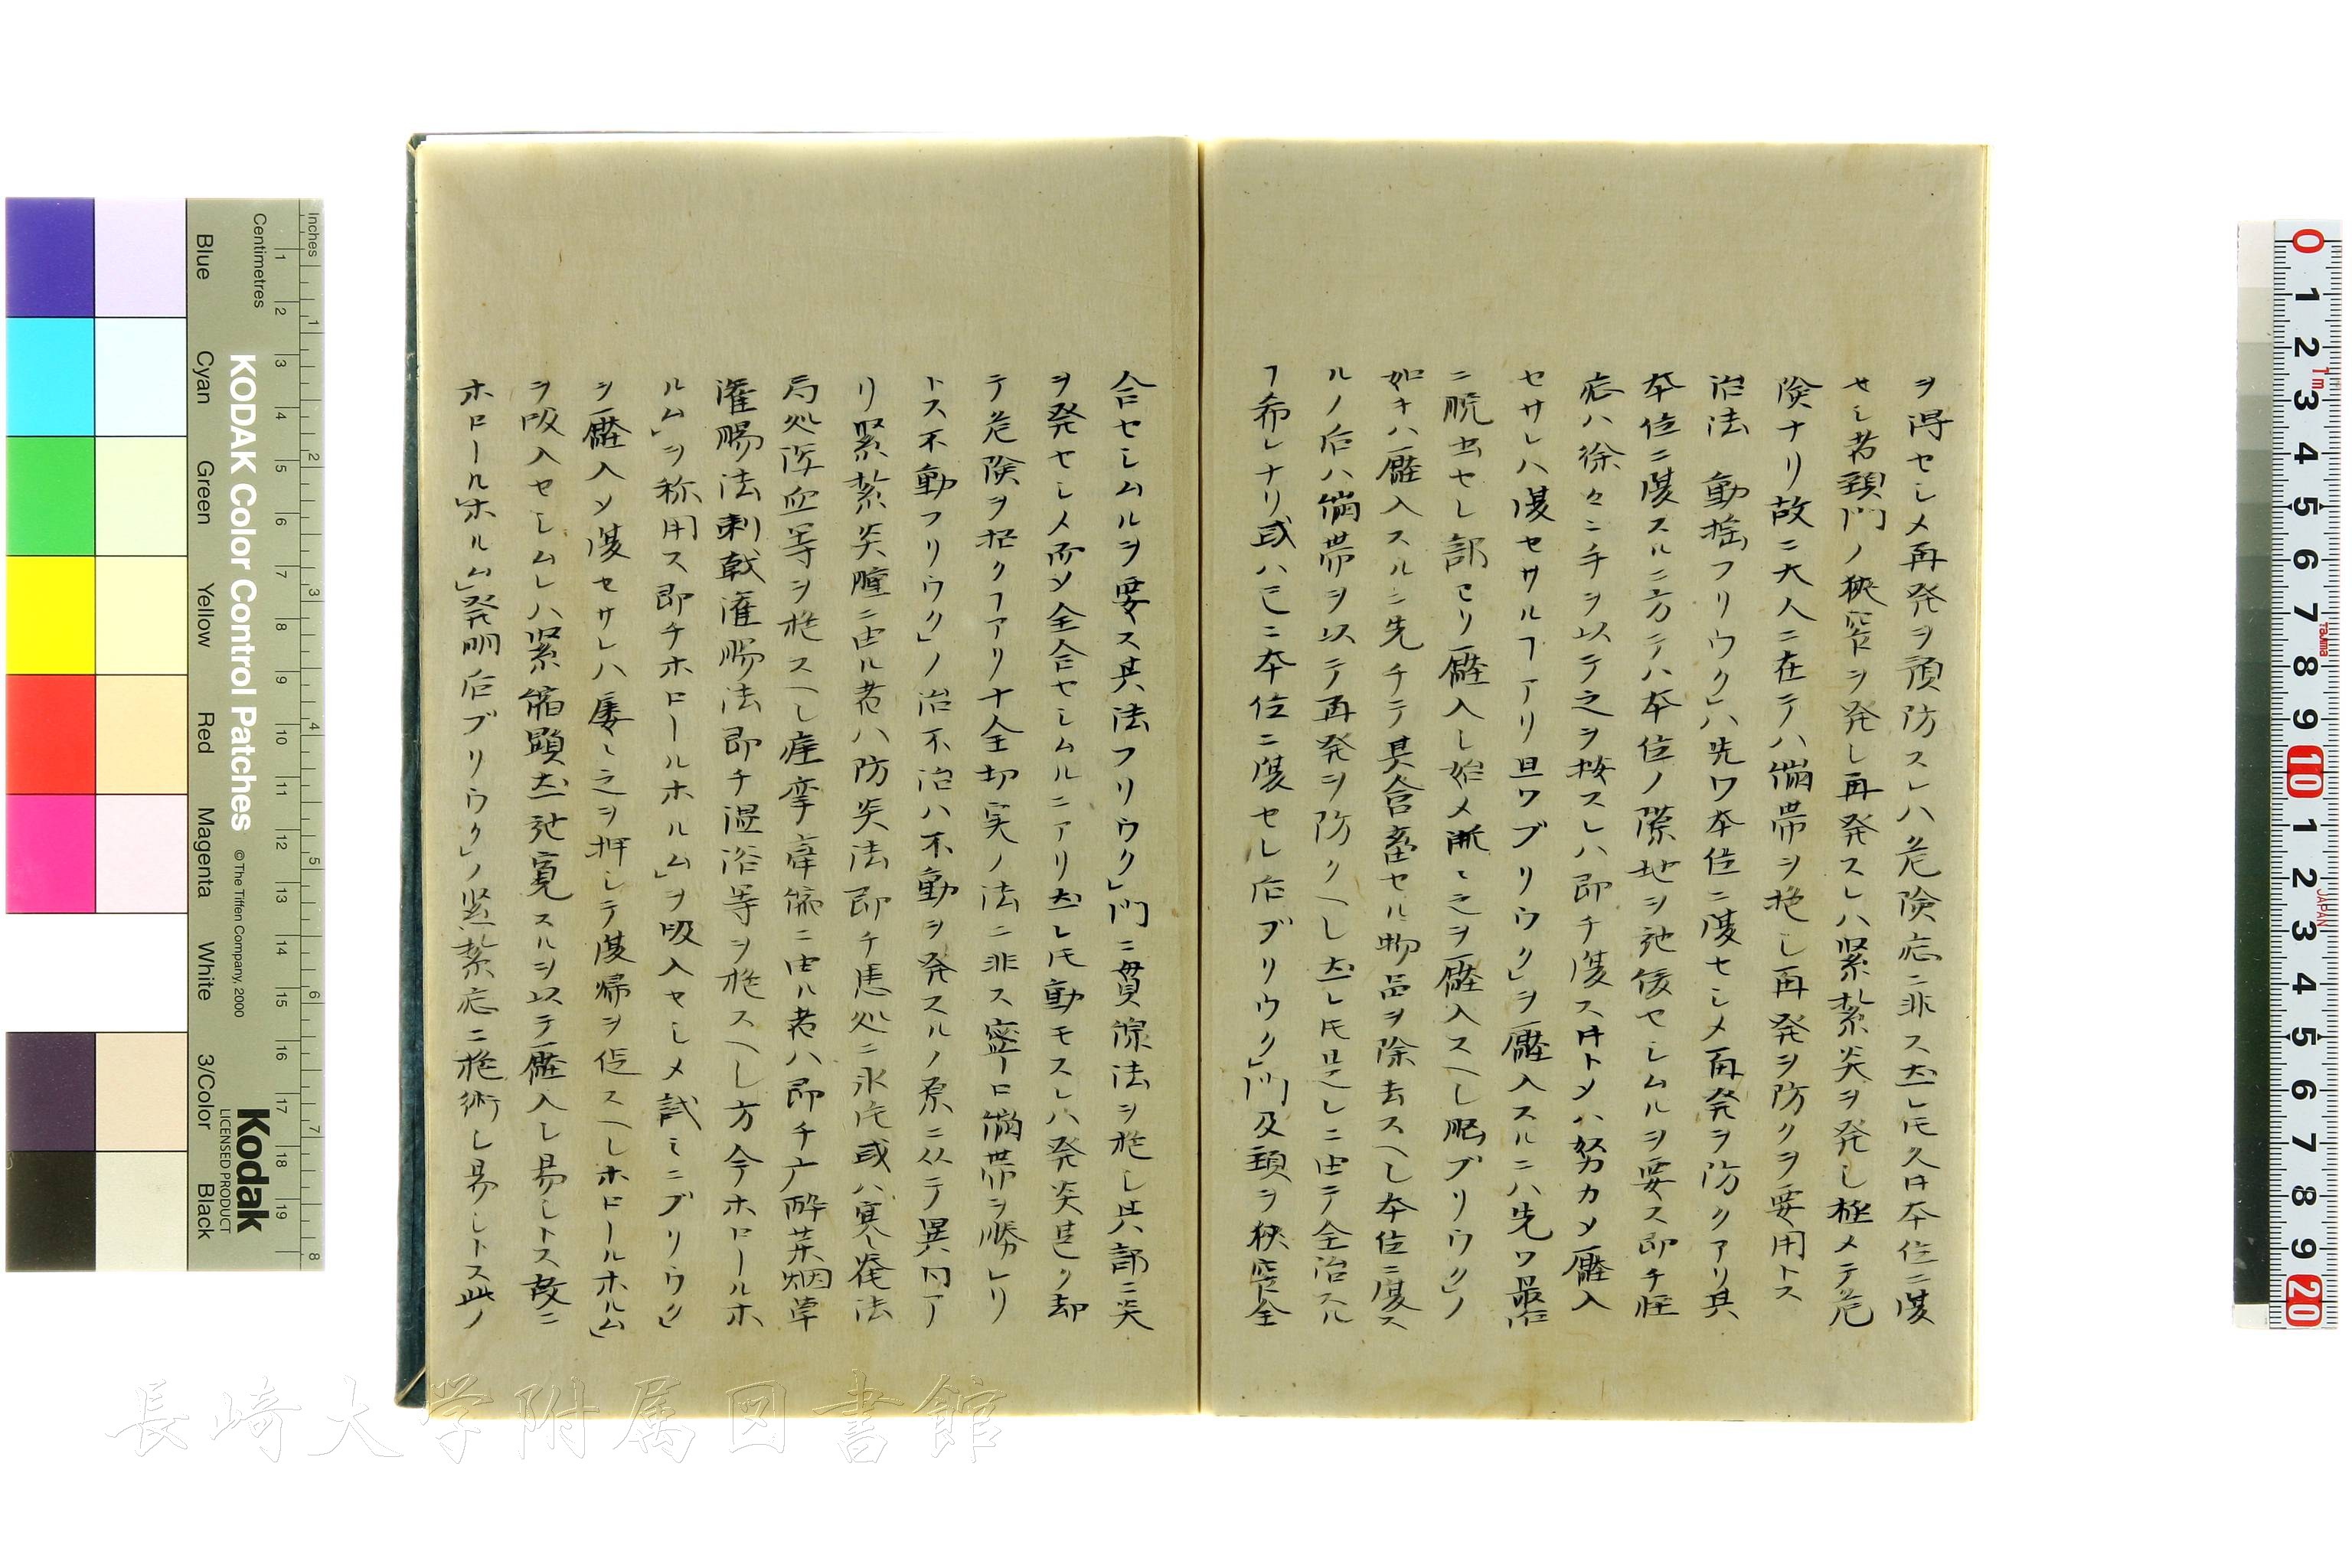 ヲ得セシメ再発ヲ預防スレハ危険症ニ非ス然レ𪜈久日本位ニ復
セシ者頚門ノ狭窄ヲ発シ再発スレハ緊紮炎ヲ発シ極メテ危
険ナリ故ニ大人ニ在テハ繃帯ヲ施シ再発ヲ防クヲ要用トス
治法 動揺フリウク」ハ先ツ本位ニ復セシメ再発ヲ防クアリ其
本位ニ復スルニ方テハ本位ノ際地ヲ弛緩セシムルヲ要ス即チ軽
症ハ徐々ニ手ヲ以テ之ヲ按スレハ即チ復ス𪜈トメハ努力メ壓入
セサレハ復セサルヿアリ且ツブリウク」ヲ壓入スルニハ先ツ最后
ニ脱出セシ部ヨリ壓入シ始メ漸々之ヲ壓入スヘシ腸ブリウク」ノ
如キハ壓入スルニ先チテ其含畜セル物品ヲ除去スヘシ本位ニ復ス
ルノ后ハ繃帯ヲ以テ再発ヲ防クヘシ然レ𪜈是レニ由テ全治スル
ヿ希レナリ或ハ已ニ本位ニ復セシ后ブリウク」門及頚ヲ狭窄全
合セシムルヲ要ス其法フリウク」門ニ貫線法ヲ施シ其部ニ炎
ヲ発セシメ而メ全合セシムルニアリ然レ𪜈動モスレハ発炎甚シク却
テ危険ヲ招クヿアリ十全切実ノ法ニ非ス寧ロ繃帯ヲ勝レリ
トス不動フリウク」ノ治不治ハ不動ヲ発スルノ原ニ从テ異同ア
リ緊紮炎腫ニ由ル者ハ防炎法即チ患処ニ氷片或ハ寒罨法
局処瀉血等ヲ施スヘし痙攣窄縮ニ由ル者ハ即チ麻酔薬烟草
灌腸法刺戟灌腸法即チ温浴等ヲ施スヘし方今ホロールホ
ルム」ヲ称用ス即チホロールホルム」ヲ吸入セシメ試ミニブリウク」
ヲ壓入メ復セサレハ屡々之ヲ押シテ復帰ヲ促スヘしホロールホルム」
ヲ吸入セシムレハ緊縮顕然弛寛スルヲ以テ壓入シ易シトス故ニ
ホロールホルム」発明后ブリウク」ノ緊紮症ニ施術シ易シトス此ノ
Inches
Centimetres
KODAK Color Control Patches
©The Tiffen Company, 2000
Kodak
LICENSED PRODUCT
Blue Cyan Green Yellow Red Magenta White 3/Color Black
長崎大学附属図書館